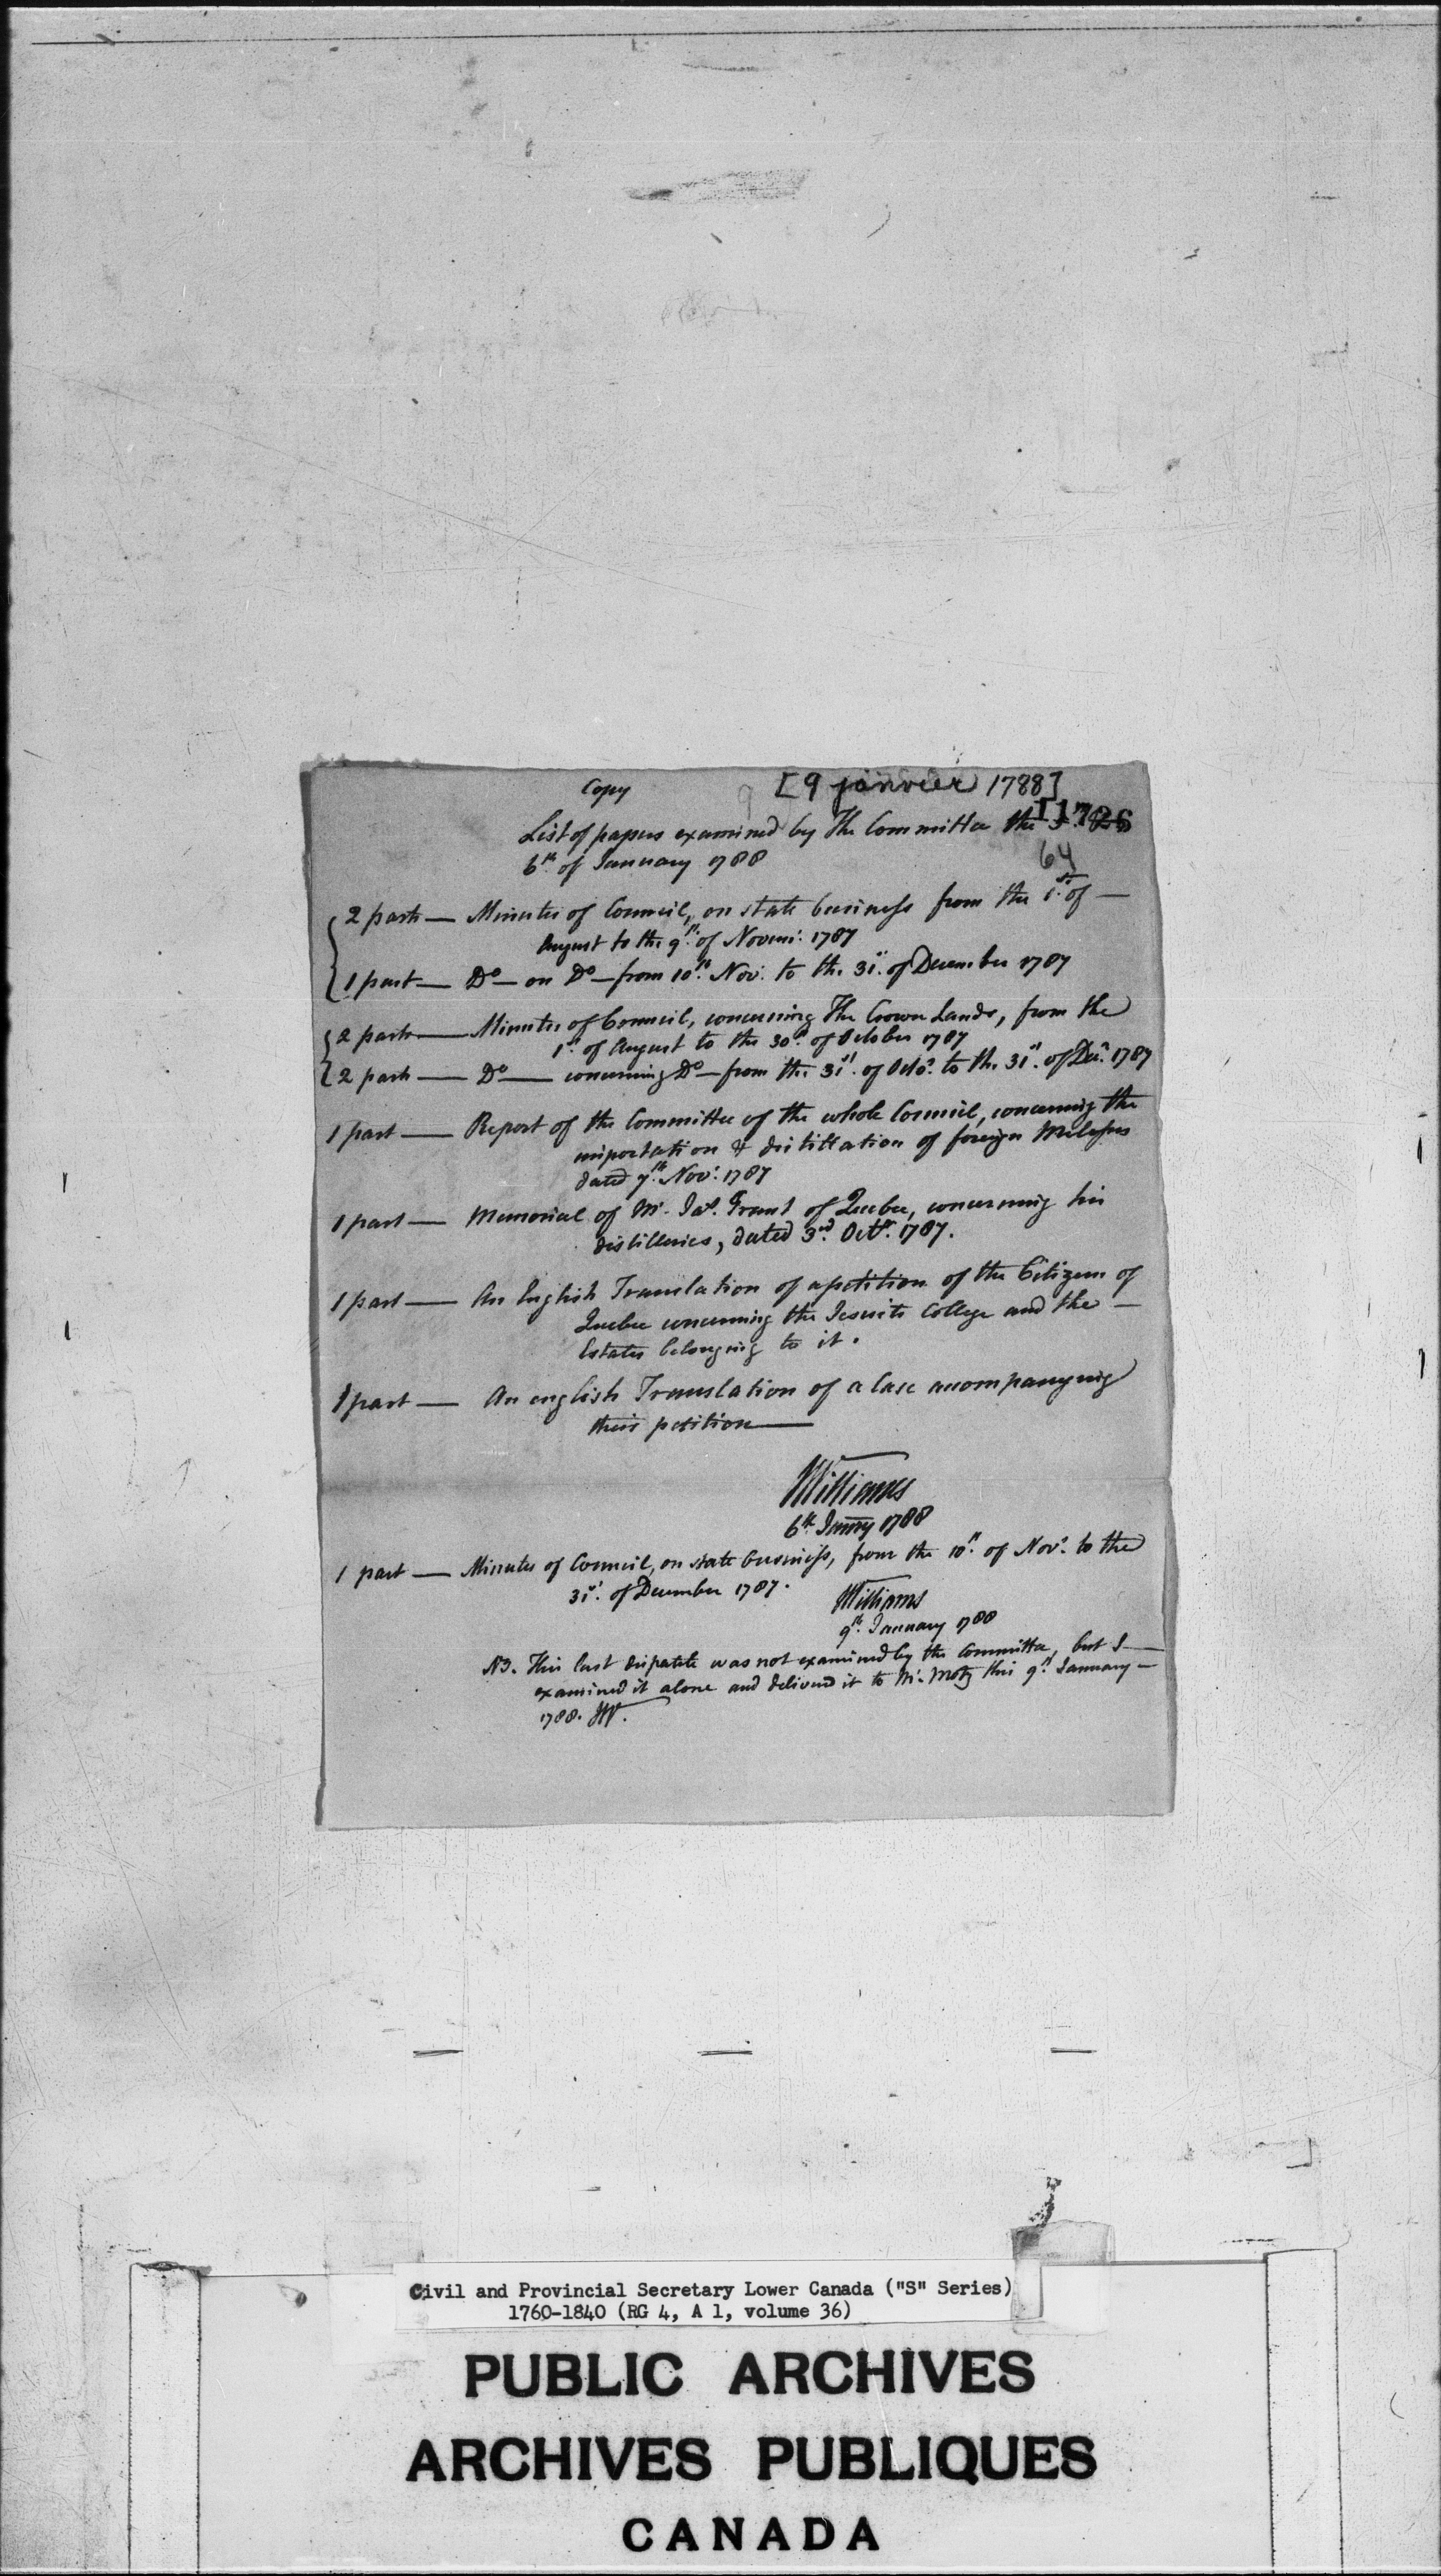 Copy
[9 janvier 1788]
11726
List of papers examined by The Committee the
6th of January 1788
64
2 parts — Minutes of Council, on state business from the 1st of —
August to the 9th of Novem: 1787
1 part — Do — on Do — from 10th Nov: to the 31st of December 1787
2 parts — Minutes of Council, concerning The Crown Lands, from the
1st of August to the 30th of October 1787
2 parts — Do — concerning Do — from the 31st of Octor. to the 31st of Decr. 1787
1 part — Report of the Committee of the whole Council, concerning the
importation & distillation of foreign Melasses
dated 7th Nov: 1787
1 part — Memorial of Mr. Jas. Grant of Quebec, concerning his
distilleries, dated 3rd Octr. 1787.
1 part — An English Translation of a petition of the Citizens of
Quebec concerning the Jesuits College and the —
Estates belonging to it.
1 part — An english Translation of a Case accompanying
their petition —
JWilliams
6th Janry 1788
1 part — Minutes of Council, on state business, from the 10th of Novr. to the
31st of December 1787.
JWilliams
9th January 1788
NB. This last dispatch was not examined by the Committee, but I —
examined it alone and delivered it to Mr. Motz this 9th January —
1788. JW.
Civil and Provincial Secretary Lower Canada ("S" Series)
1760-1840 (RG 4, A 1, volume 36)
PUBLIC ARCHIVES
ARCHIVES PUBLIQUES
CANADA